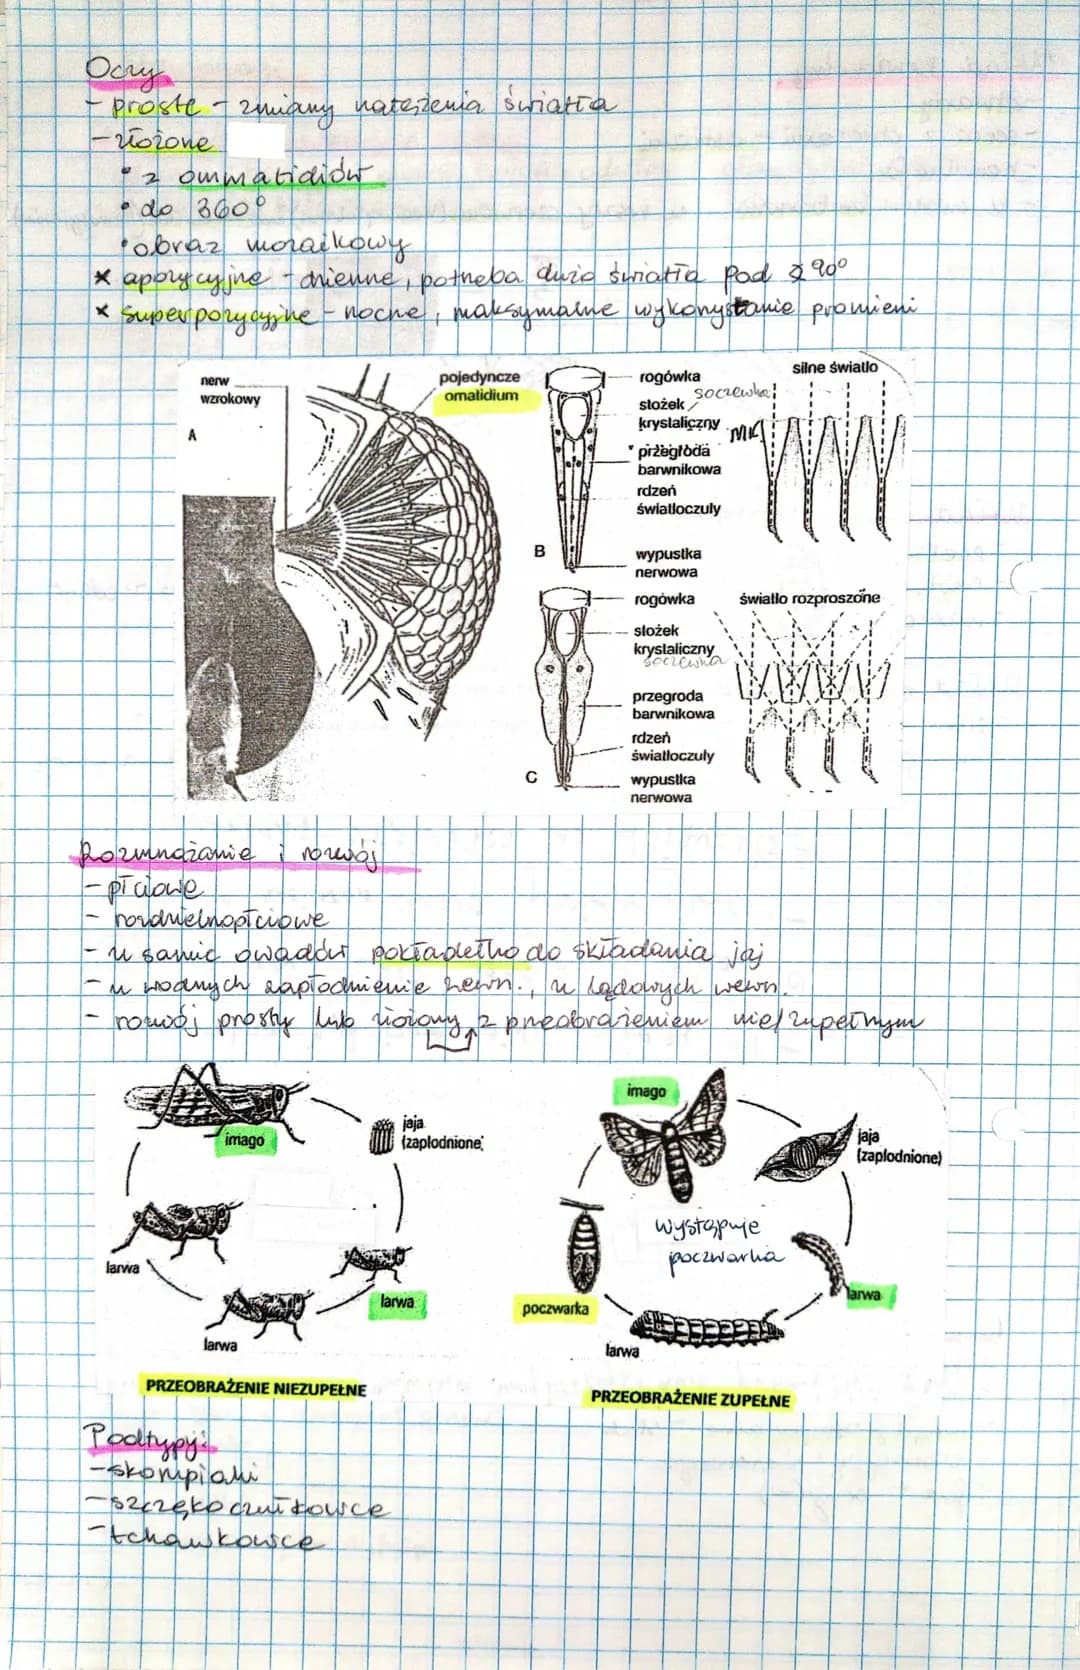 Oczy
- proste - zmiany natężenia światła
- złożone
• z ommatidiów
• do 360°
• obraz mozaikowy
× apozycyjne - dzienne, potrzeba dużo światła pod ∡ 90°
× superpozycyjne - nocne, maksymalne wykorzystanie promieni
nerw
wzrokowy
A
pojedyncze
omatidium
B
rogówka
soczewka
stożek
krystaliczny
przegroda
barwnikowa
rdzeń
światłoczuły
wypustka
nerwowa
silne światło
C
rogówka
stożek
krystaliczny
soczewka
przegroda
barwnikowa
rdzeń
światłoczuły
wypustka
nerwowa
światło rozproszone
Rozmnażanie i rozwój
- płciowe
- rozdzielnopłciowe
- u samic owadów pokładełko do składania jaj
- u wodnych zapłodnienie zewn., u lądowych wewn.
- rozwój prosty lub złożony z przeobrażeniem nie/zupełnym
imago
jaja
(zapłodnione)
larwa
larwa
larwa
PRZEOBRAŻENIE NIEZUPEŁNE
imago
jaja
(zapłodnione)
występuje
poczwarka
poczwarka
larwa
larwa
PRZEOBRAŻENIE ZUPEŁNE
Podtypy:
- skorupiaki
- szczękoczułkowce
- tchawkowce